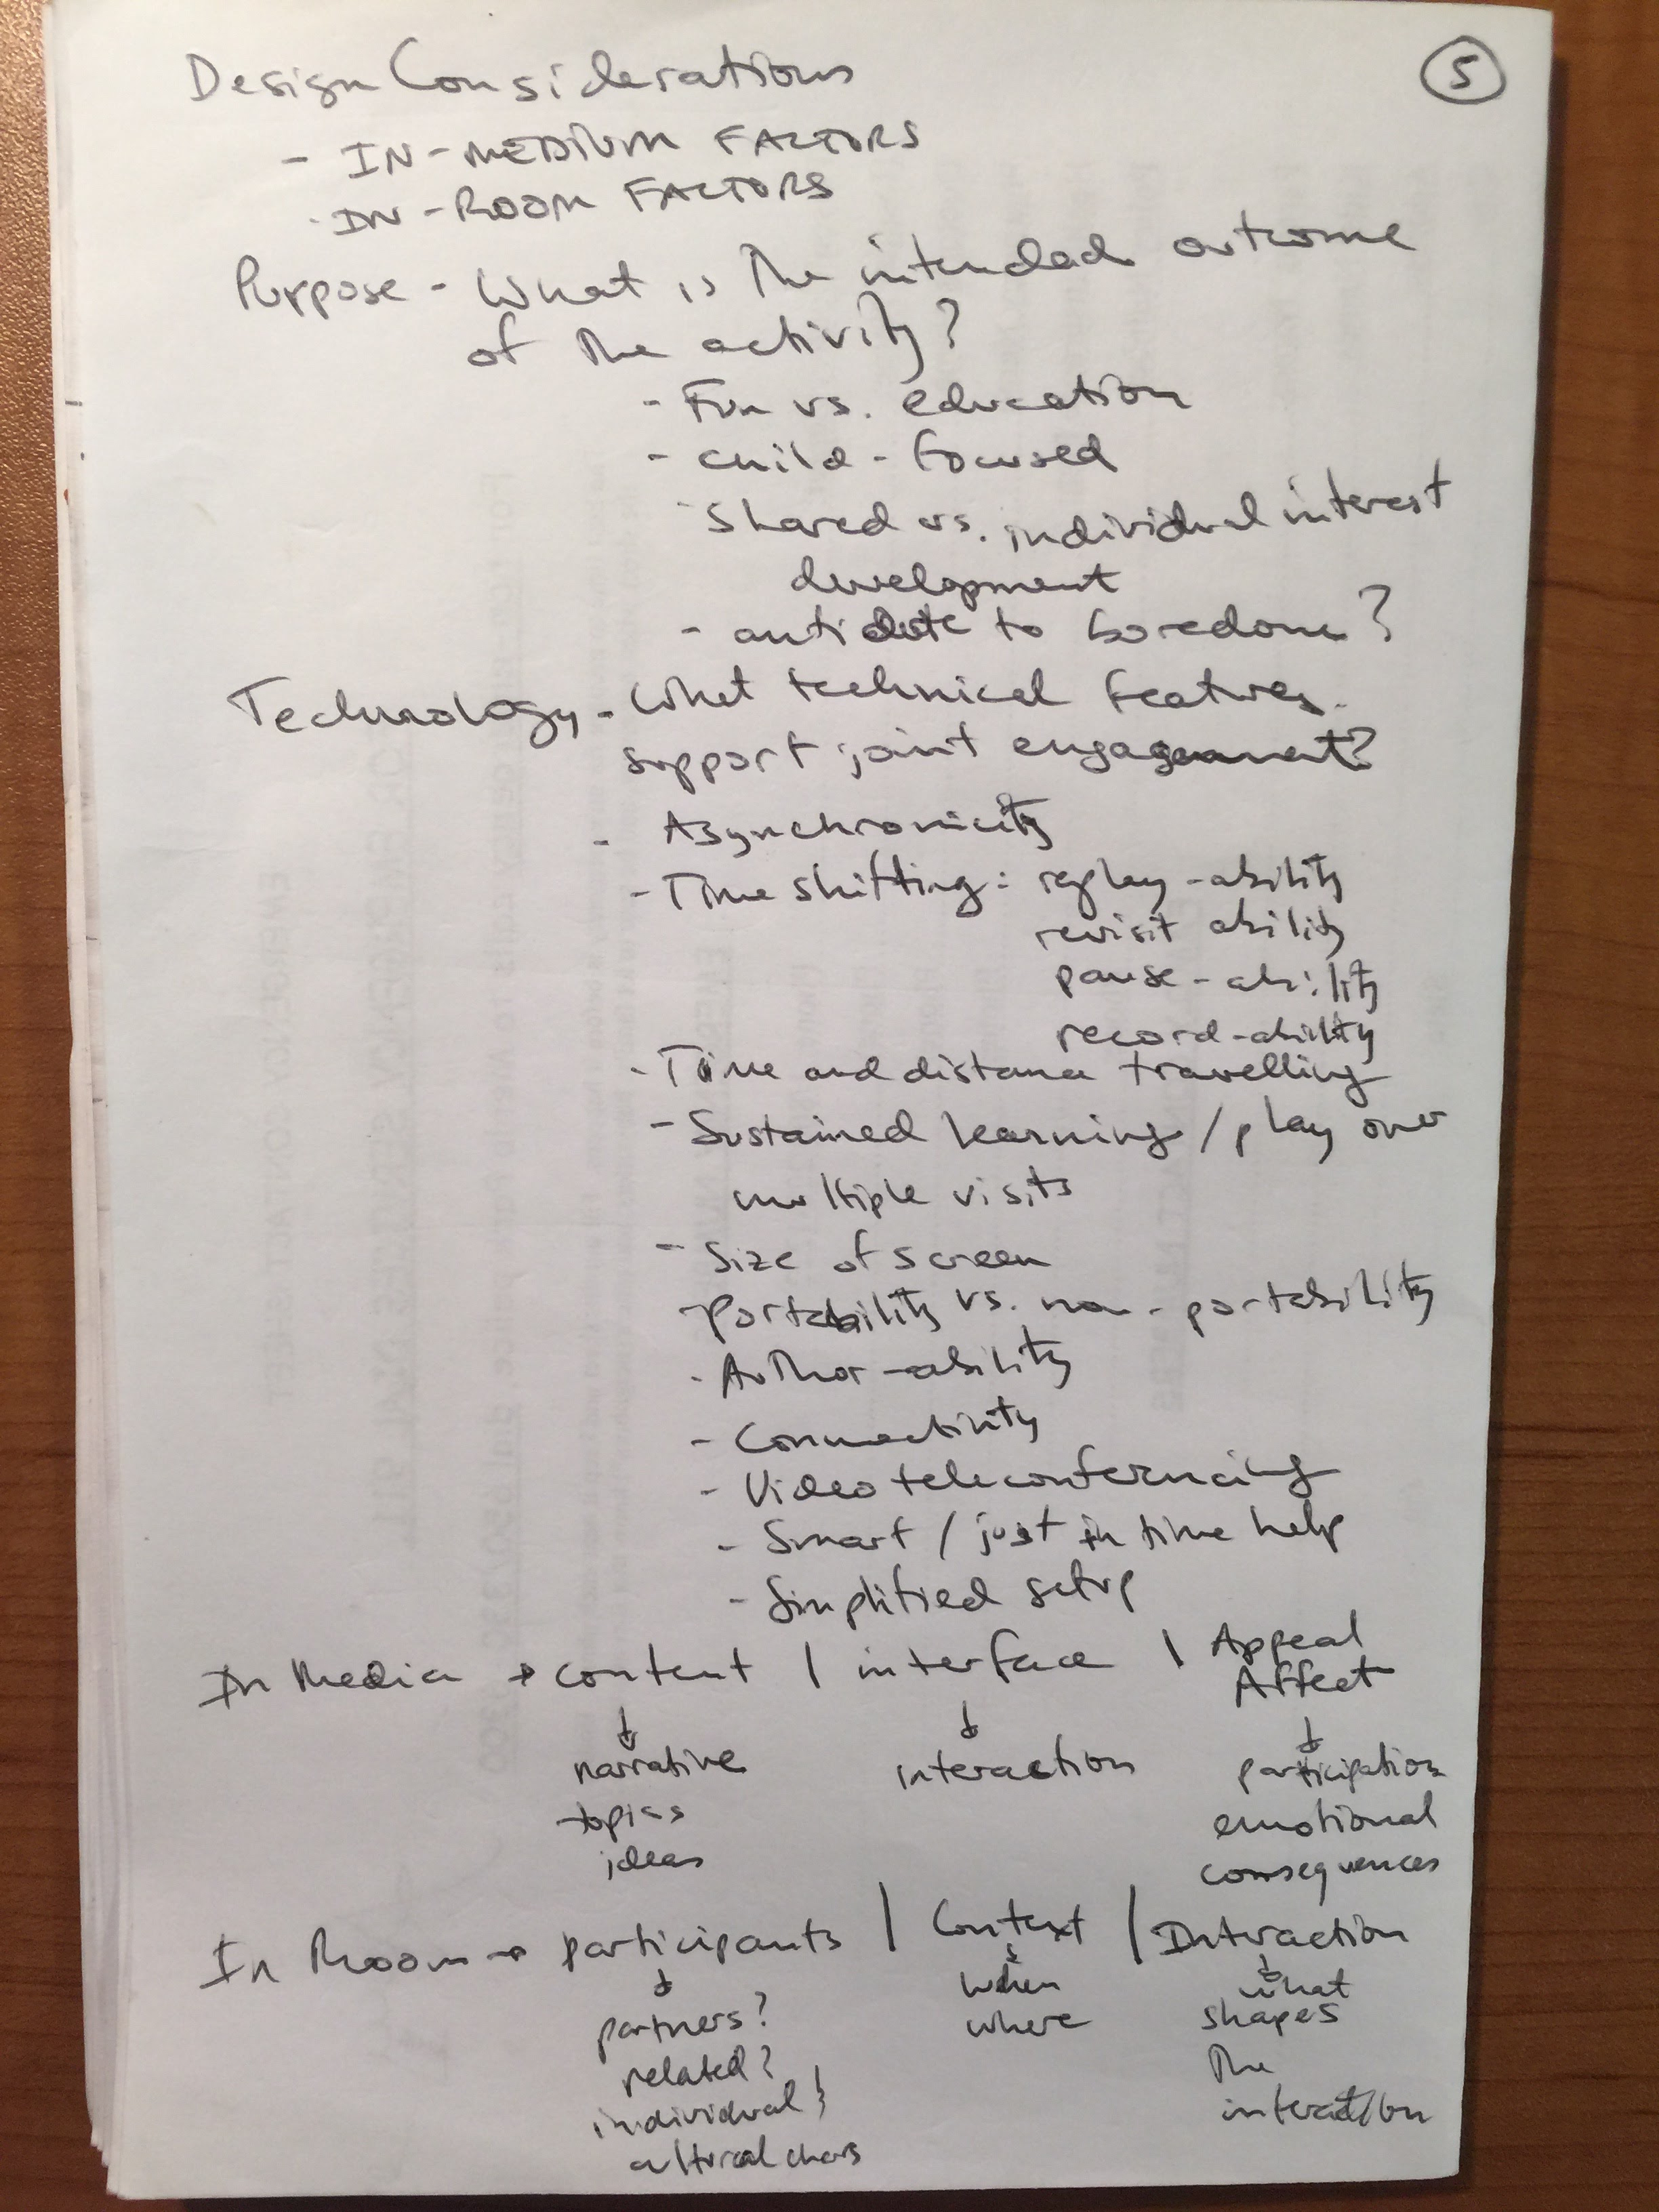 5
Design Considerations
- IN-MEDIUM FACTORS
- IN-ROOM FACTORS
Purpose - What is the intended outcome
of the activity?
- Fun vs. education
- child-focused
- Shared vs. individual interest
development
- antidote to boredom?
Technology - What technical features
support joint engagement?
- Asynchronicity
- Time shifting: replay-ability
revisit ability
pause-ability
record-ability
- Time and distance travelling
- Sustained learning / play over
multiple visits
- Size of screen
- Portability vs. non-portability
- Author-ability
- Connectivity
- Video teleconferencing
- Smart / just in time help
- Simplified setup
In Media → content | interface | Appeal
Affect
↓ ↓ ↓
narrative interaction participation
topics emotional
ideas consequences
In Room → participants | Context | Interaction
↓ ↓ ↓
partners? when what
related? where shapes
individual & the
cultural chars interaction